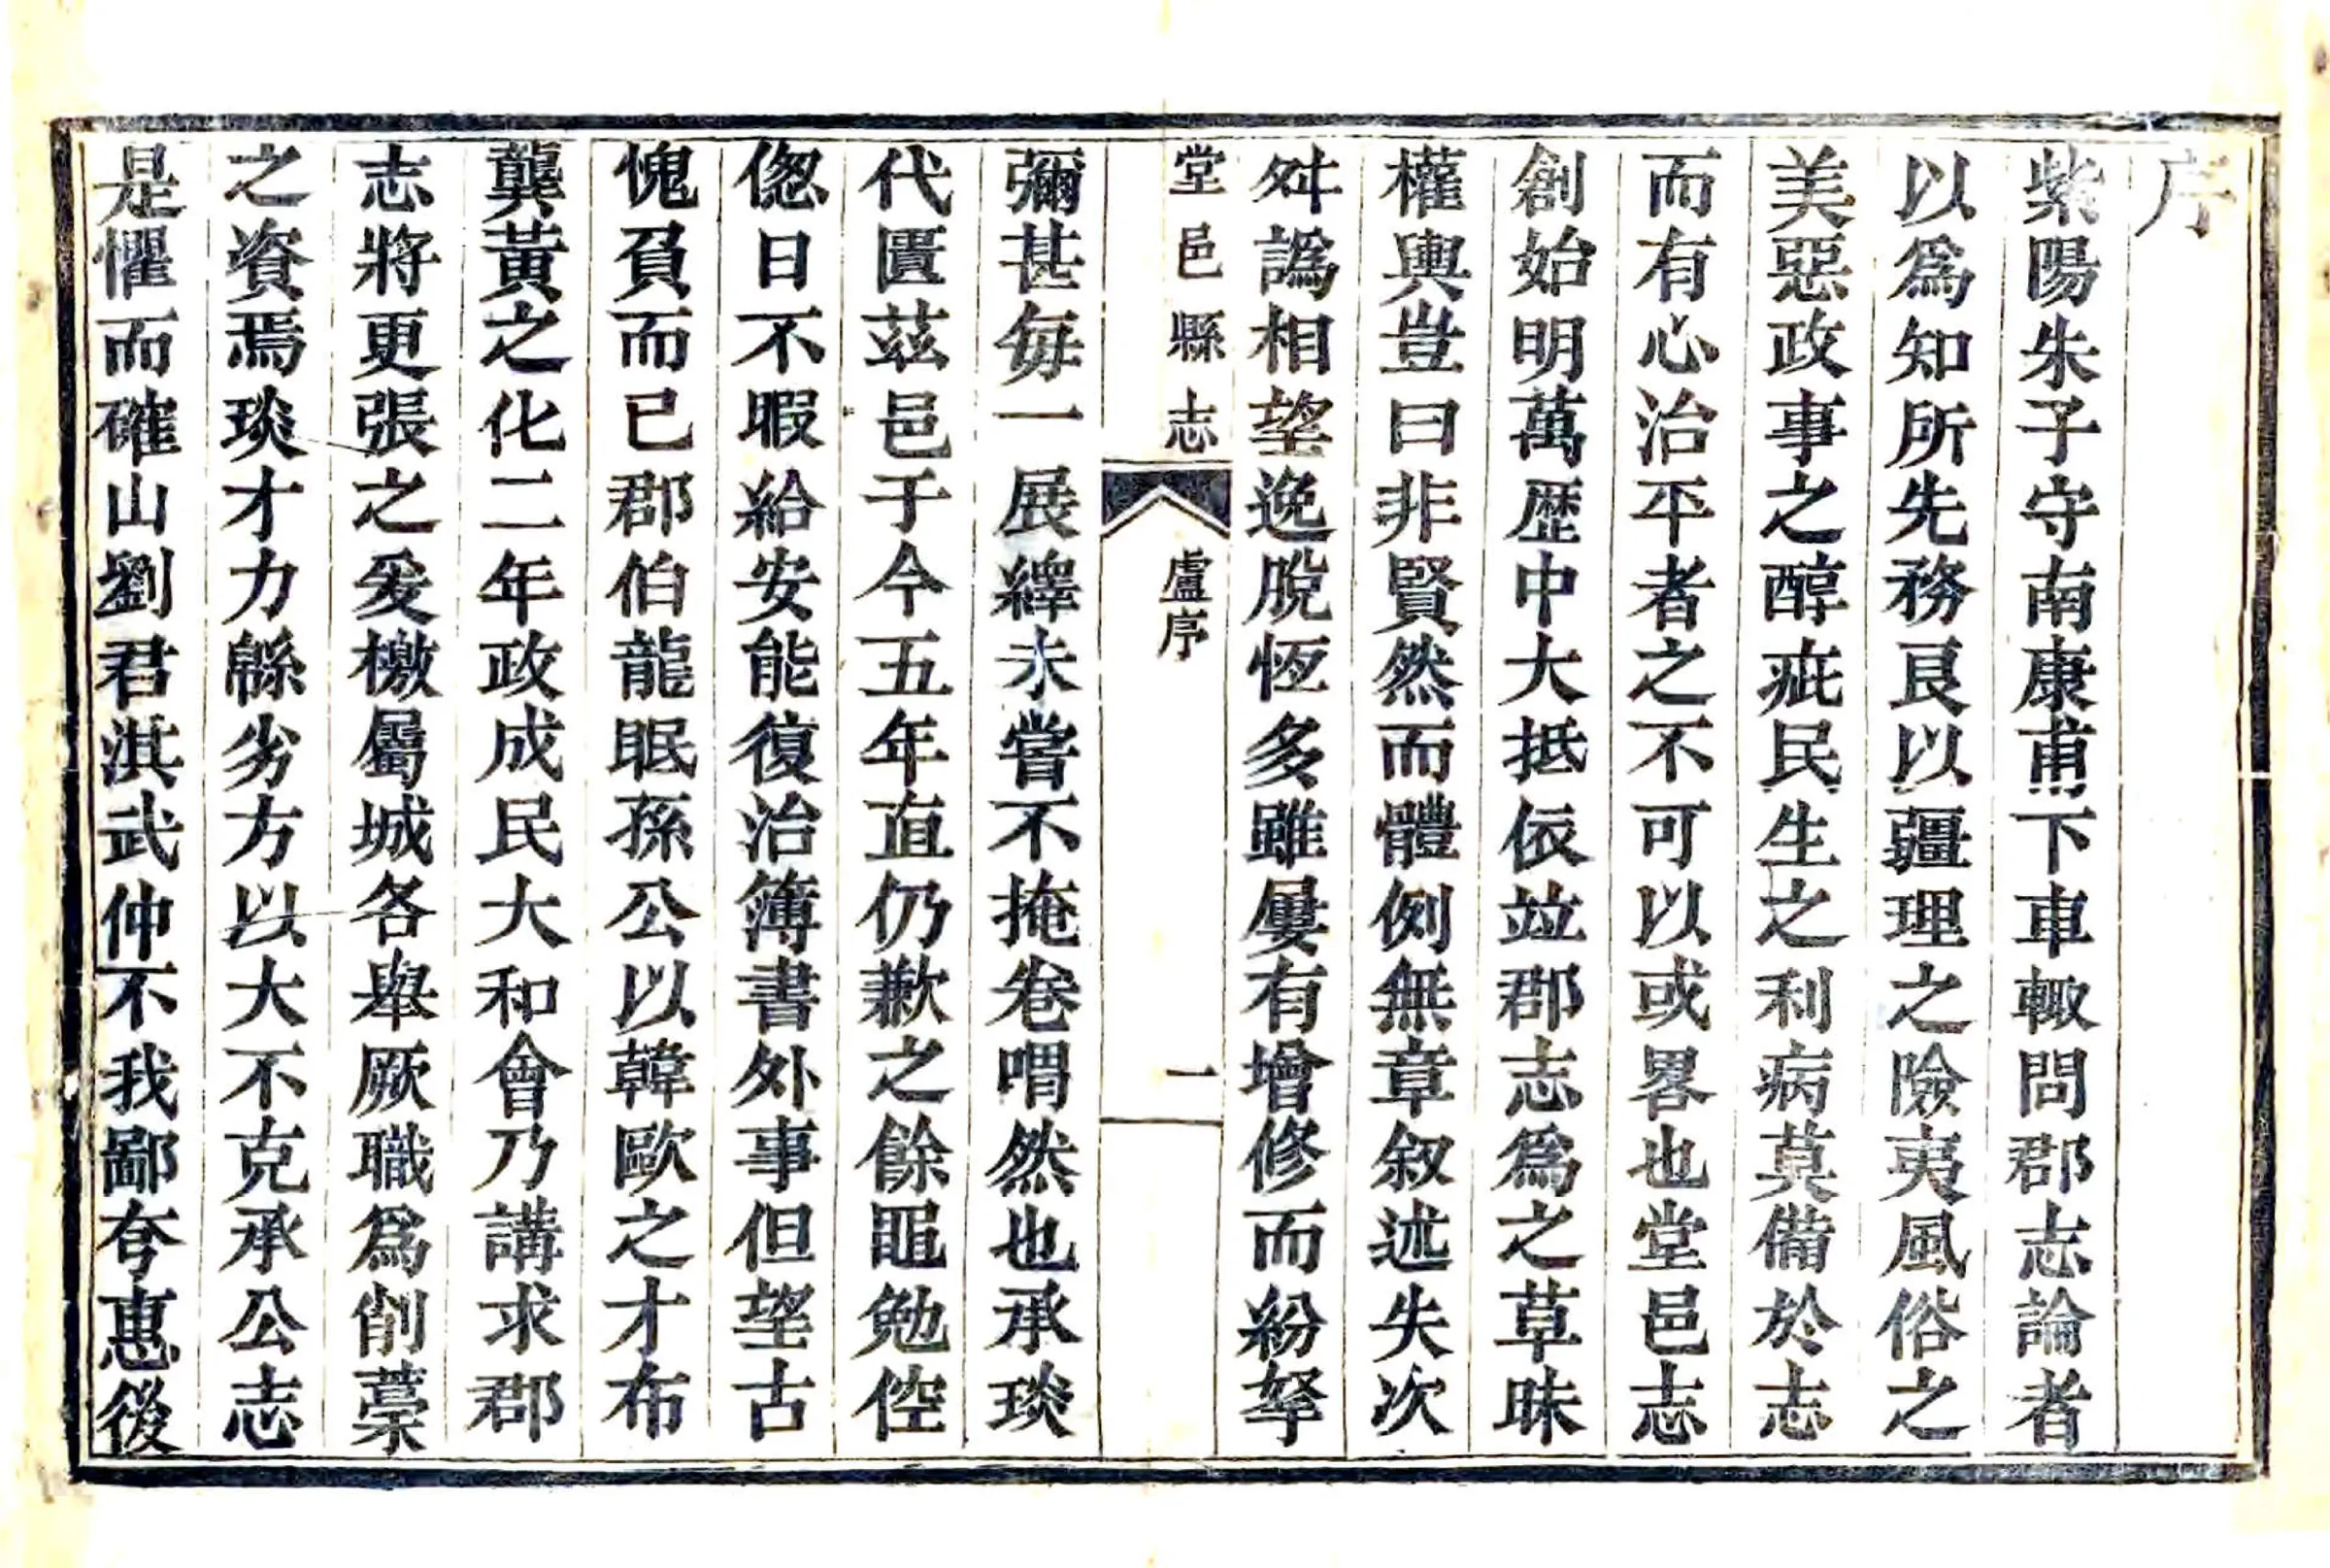 序
紫陽朱子守南康甫下車輙問郡志論者
以爲知所先務良以疆理之險夷風俗之
美惡政事之醇疵民生之利病莫備於志
而有心治平者之不可以或畧也堂邑志
創始明萬歷中大抵依竝郡志爲之草昧
權輿豈曰非賢然而體例無章叙述失次
舛譌相望逸脫恆多雖屢有增修而紛拏
堂邑縣志
盧序
一
彌甚每一展繹未嘗不掩卷喟然也承琰
代匱茲邑于今五年直仍歉之餘黽勉倥
偬日不暇給安能復治簿書外事但望古
愧負而已郡伯龍眠孫公以韓歐之才布
龔黃之化二年政成民大和會乃講求郡
志將更張之爰檄屬城各舉厥職爲削藁
之資焉琰才力緜劣方以大不克承公志
是懼而確山劉君淇武仲不我鄙夸惠後